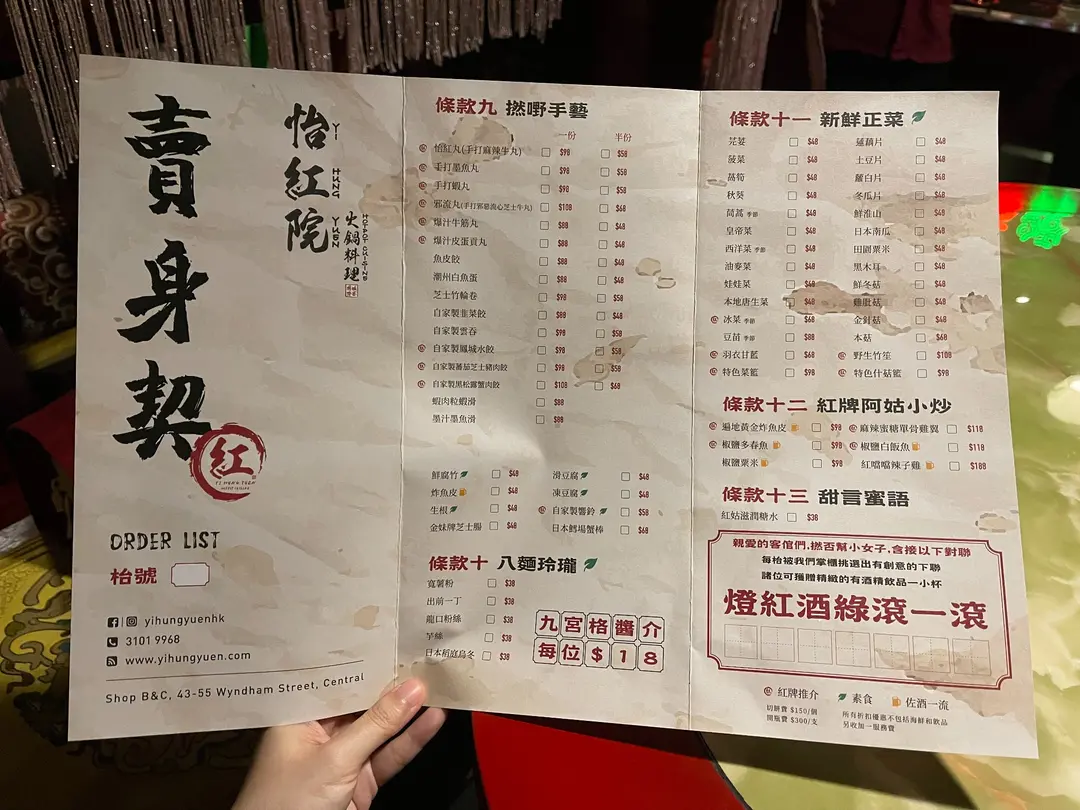 賣身契
怡紅院
YI HUNG YUEN
火鍋料理
HOTPOT CUISINE
紅
YI HUNG YUEN
ORDER LIST
枱號
yihungyuenhk
3101 9968
www.yihungyuen.com
Shop B&C, 43-55 Wyndham Street, Central
條款九 撚嘢手藝
一份 半份
怡紅丸(手打麻辣牛丸) $98 $58
手打墨魚丸 $98 $58
手打蝦丸 $98 $58
邪流丸(手打邪惡流心芝士牛丸) $108 $68
爆汁牛筋丸 $88 $48
爆汁皮蛋貢丸 $88 $48
魚皮餃 $88 $48
潮州白魚蛋 $88 $48
芝士竹輪卷 $98 $58
自家製韭菜餃 $88 $48
自家製雲吞 $98 $58
自家製鳳城水餃 $98 $58
自家製蕃茄芝士豬肉餃 $98 $58
自家製黑松露蟹肉餃 $108 $68
蝦肉粒蝦滑 $88
墨汁墨魚滑 $88
鮮腐竹 $48 滑豆腐 $48
炸魚皮 $48 凍豆腐 $48
生根 $48 自家製響鈴 $58
金妹牌芝士腸 $48 日本鱈場蟹棒 $68
條款十 八麵玲瓏
寬薯粉 $38
出前一丁 $38
龍口粉絲 $38
芋絲 $38
日本稻庭烏冬 $38
九宮格醬介
每位$18
條款十一 新鮮正菜
芫荽 $48 蓮藕片 $48
菠菜 $48 土豆片 $48
萵筍 $48 蘿白片 $48
秋葵 $48 冬瓜片 $48
茼蒿 季節 $48 鮮淮山 $48
皇帝菜 $48 日本南瓜 $48
西洋菜 季節 $48 田園粟米 $48
油麥菜 $48 黑木耳 $48
娃娃菜 $48 鮮冬菇 $48
本地唐生菜 $48 雞肶菇 $48
冰菜 季節 $68 金針菇 $48
豆苗 季節 $88 本菇 $68
羽衣甘藍 $68 野生竹笙 $108
特色菜籃 $68 特色什菇籃 $98
條款十二 紅牌阿姑小炒
遍地黃金炸魚皮 $98 麻辣蜜糖單骨雞翼 $118
椒鹽多春魚 $98 椒鹽白飯魚 $118
椒鹽粟米 $98 紅噹噹辣子雞 $188
條款十三 甜言蜜語
紅姑滋潤糖水 $38
親愛的客倌們,撚否幫小女子,含接以下對聯
每枱被我們掌櫃挑選出有創意的下聯
諸位可獲贈精緻的有酒精飲品一小杯
燈紅酒綠滾一滾
紅牌推介 素食 佐酒一流
切餅費 $150/個
開瓶費 $300/支
所有折扣優惠不包括海鮮和飲品
另收加一服務費